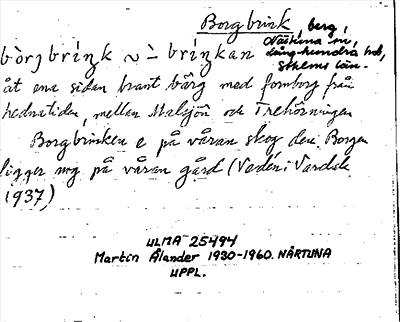 Borgbrink, berg,
Närtuna sn,
Långhundra hd,
Sthlms län.
bòrgbríŋk ~ -̀ bríŋkan
åt ena sidan brant bärg med fornborg från
hednatiden, mellan Malsjön och Trehörningen
Borgbrinken e på våran skog den. Borgen
ligger nog på våran gård (Vadén i Vardsk
1937)
ULMA 25494
Martin Ålander 1930-1960. NÄRTUNA
UPPL.